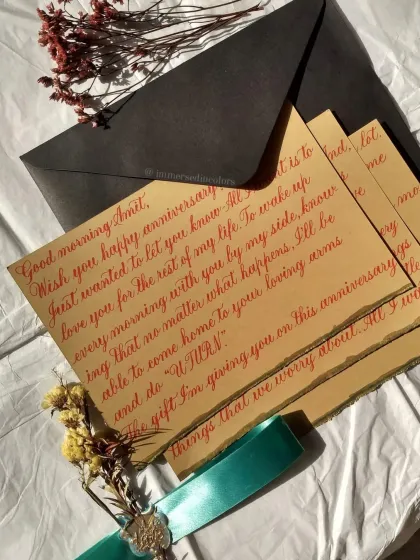 @immersedincolors
Good morning Amit,
Wish you happy anniversary.
Just wanted to let you know All I want is to
love you for the rest of my life. To wake up
every morning with you by my side, know
ing that no matter what happens, I'll be
able to come home to your loving arms
and do "U-TURN".
The gift I'm giving you on this anniversary
things that we worry about. All I
and,
lot.
me